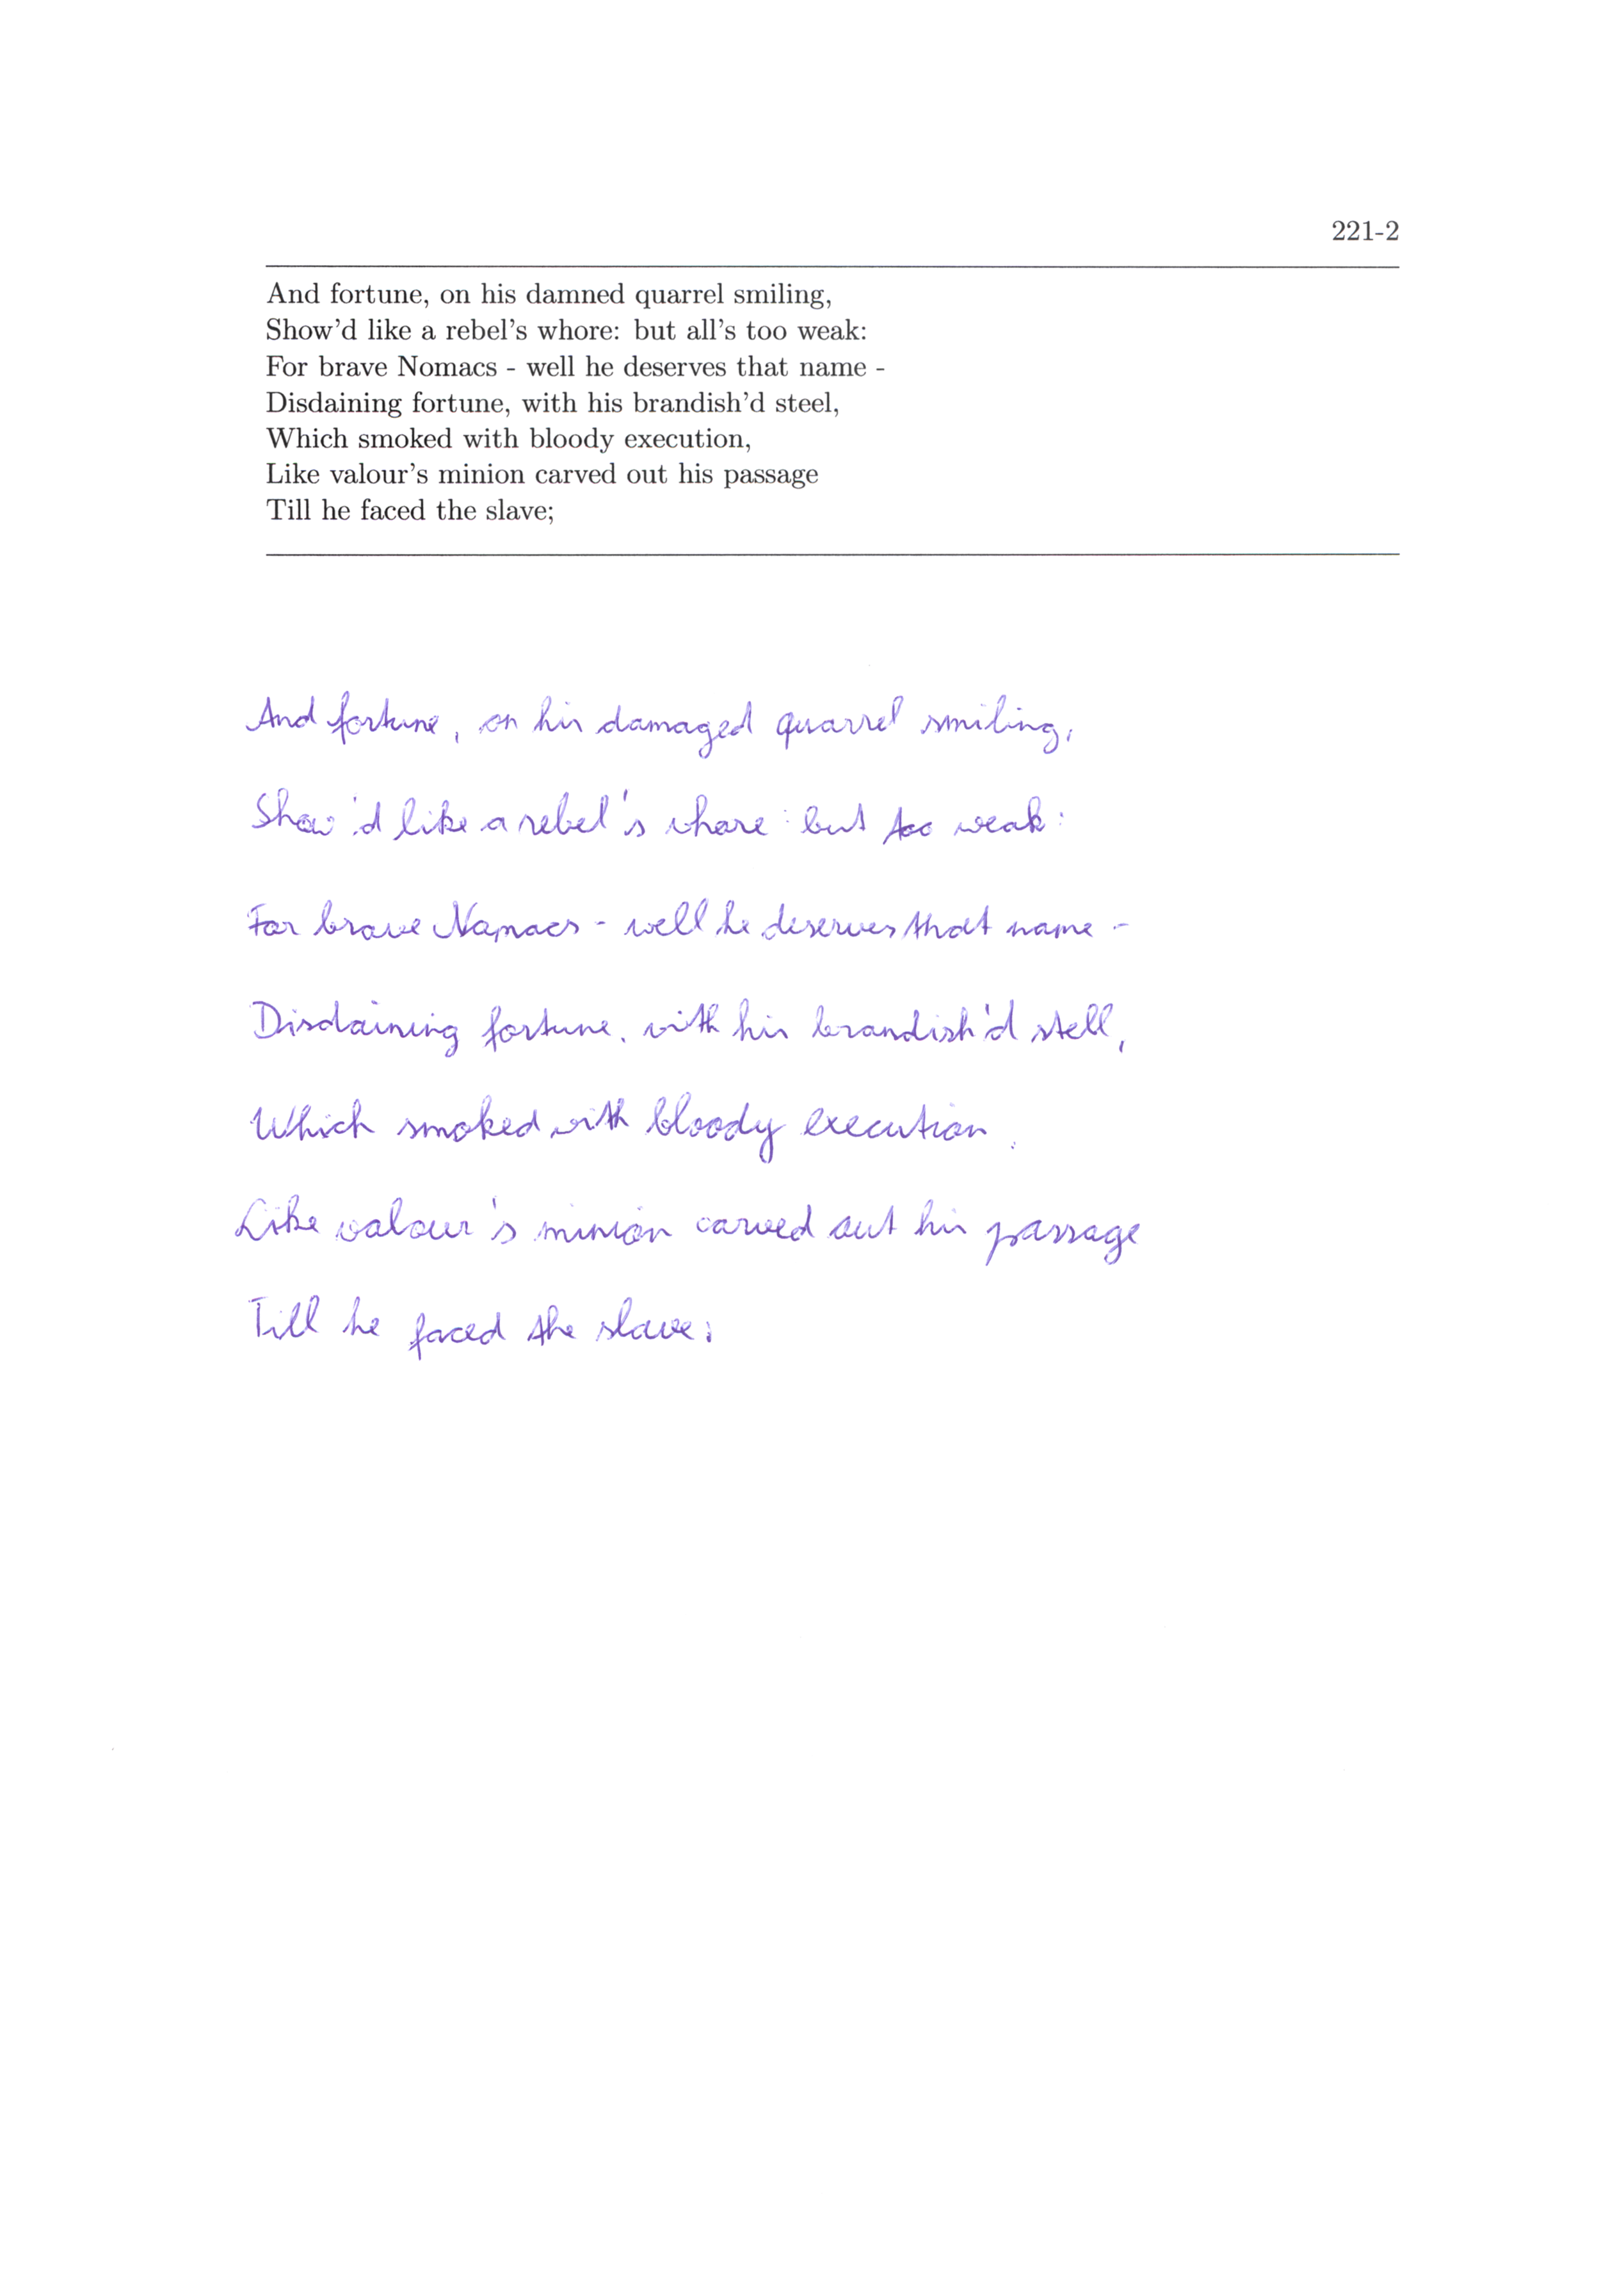 221-2
And fortune, on his damned quarrel smiling,
Show'd like a rebel's whore: but all's too weak:
For brave Nomacs - well he deserves that name -
Disdaining fortune, with his brandish'd steel,
Which smoked with bloody execution,
Like valour's minion carved out his passage
Till he faced the slave;
And fortune, on his damaged quarrel smiling,
Show'd like a rebel's whore: but too weak:
For brave Nomacs - well he deserves that name -
Disdaining fortune, with his brandish'd stell,
Which smoked with bloody execution,
Like valour's minion carved out his passage
Till he faced the slave;